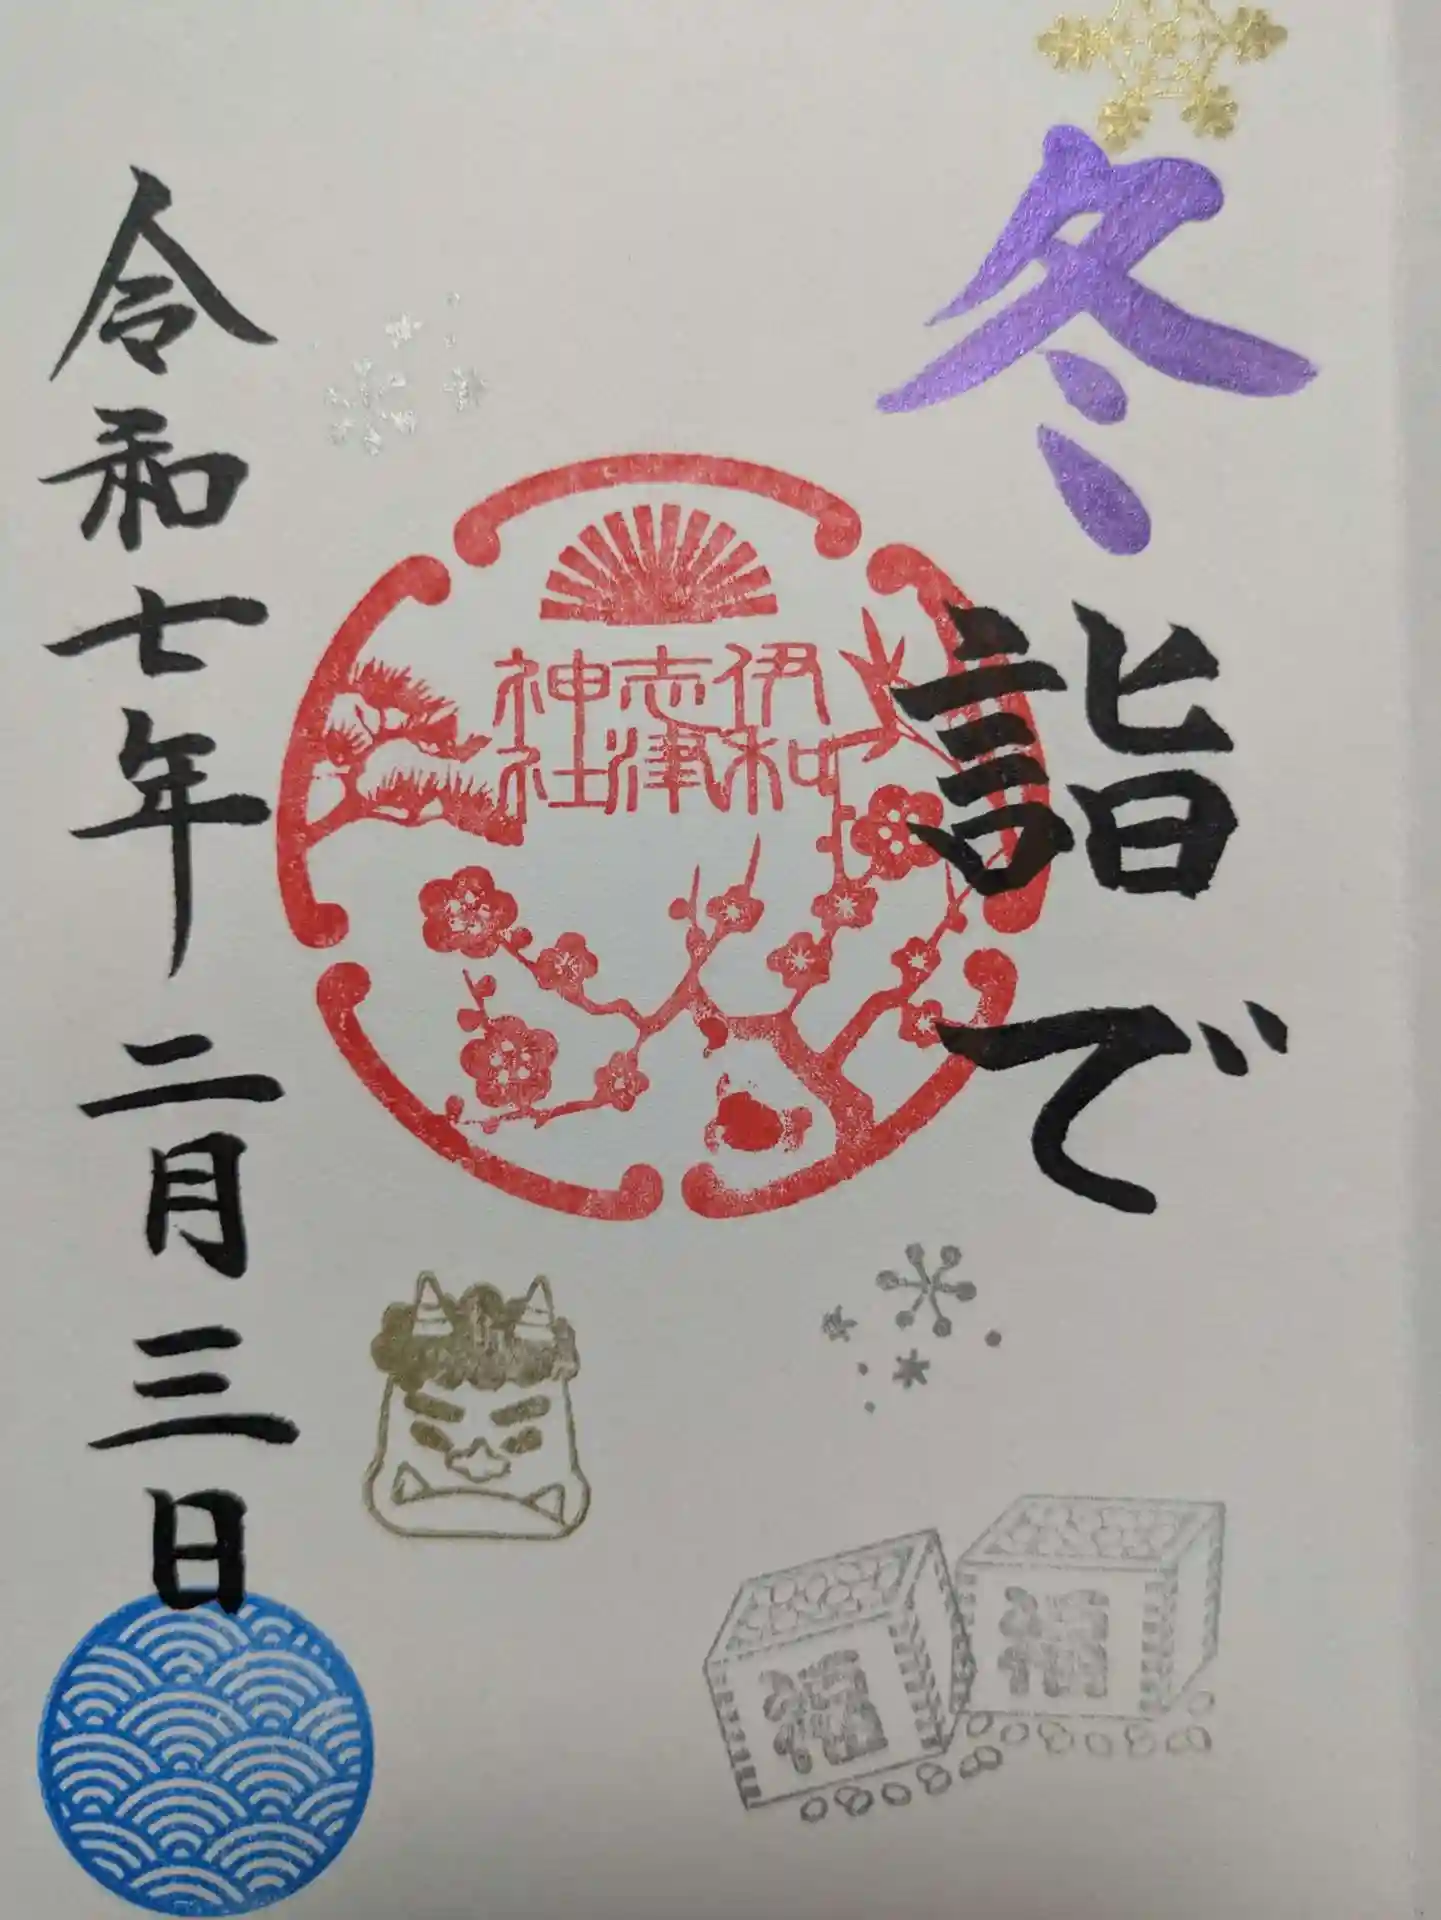 冬詣で
伊和
志津
神社
令和七年二月三日
福
福